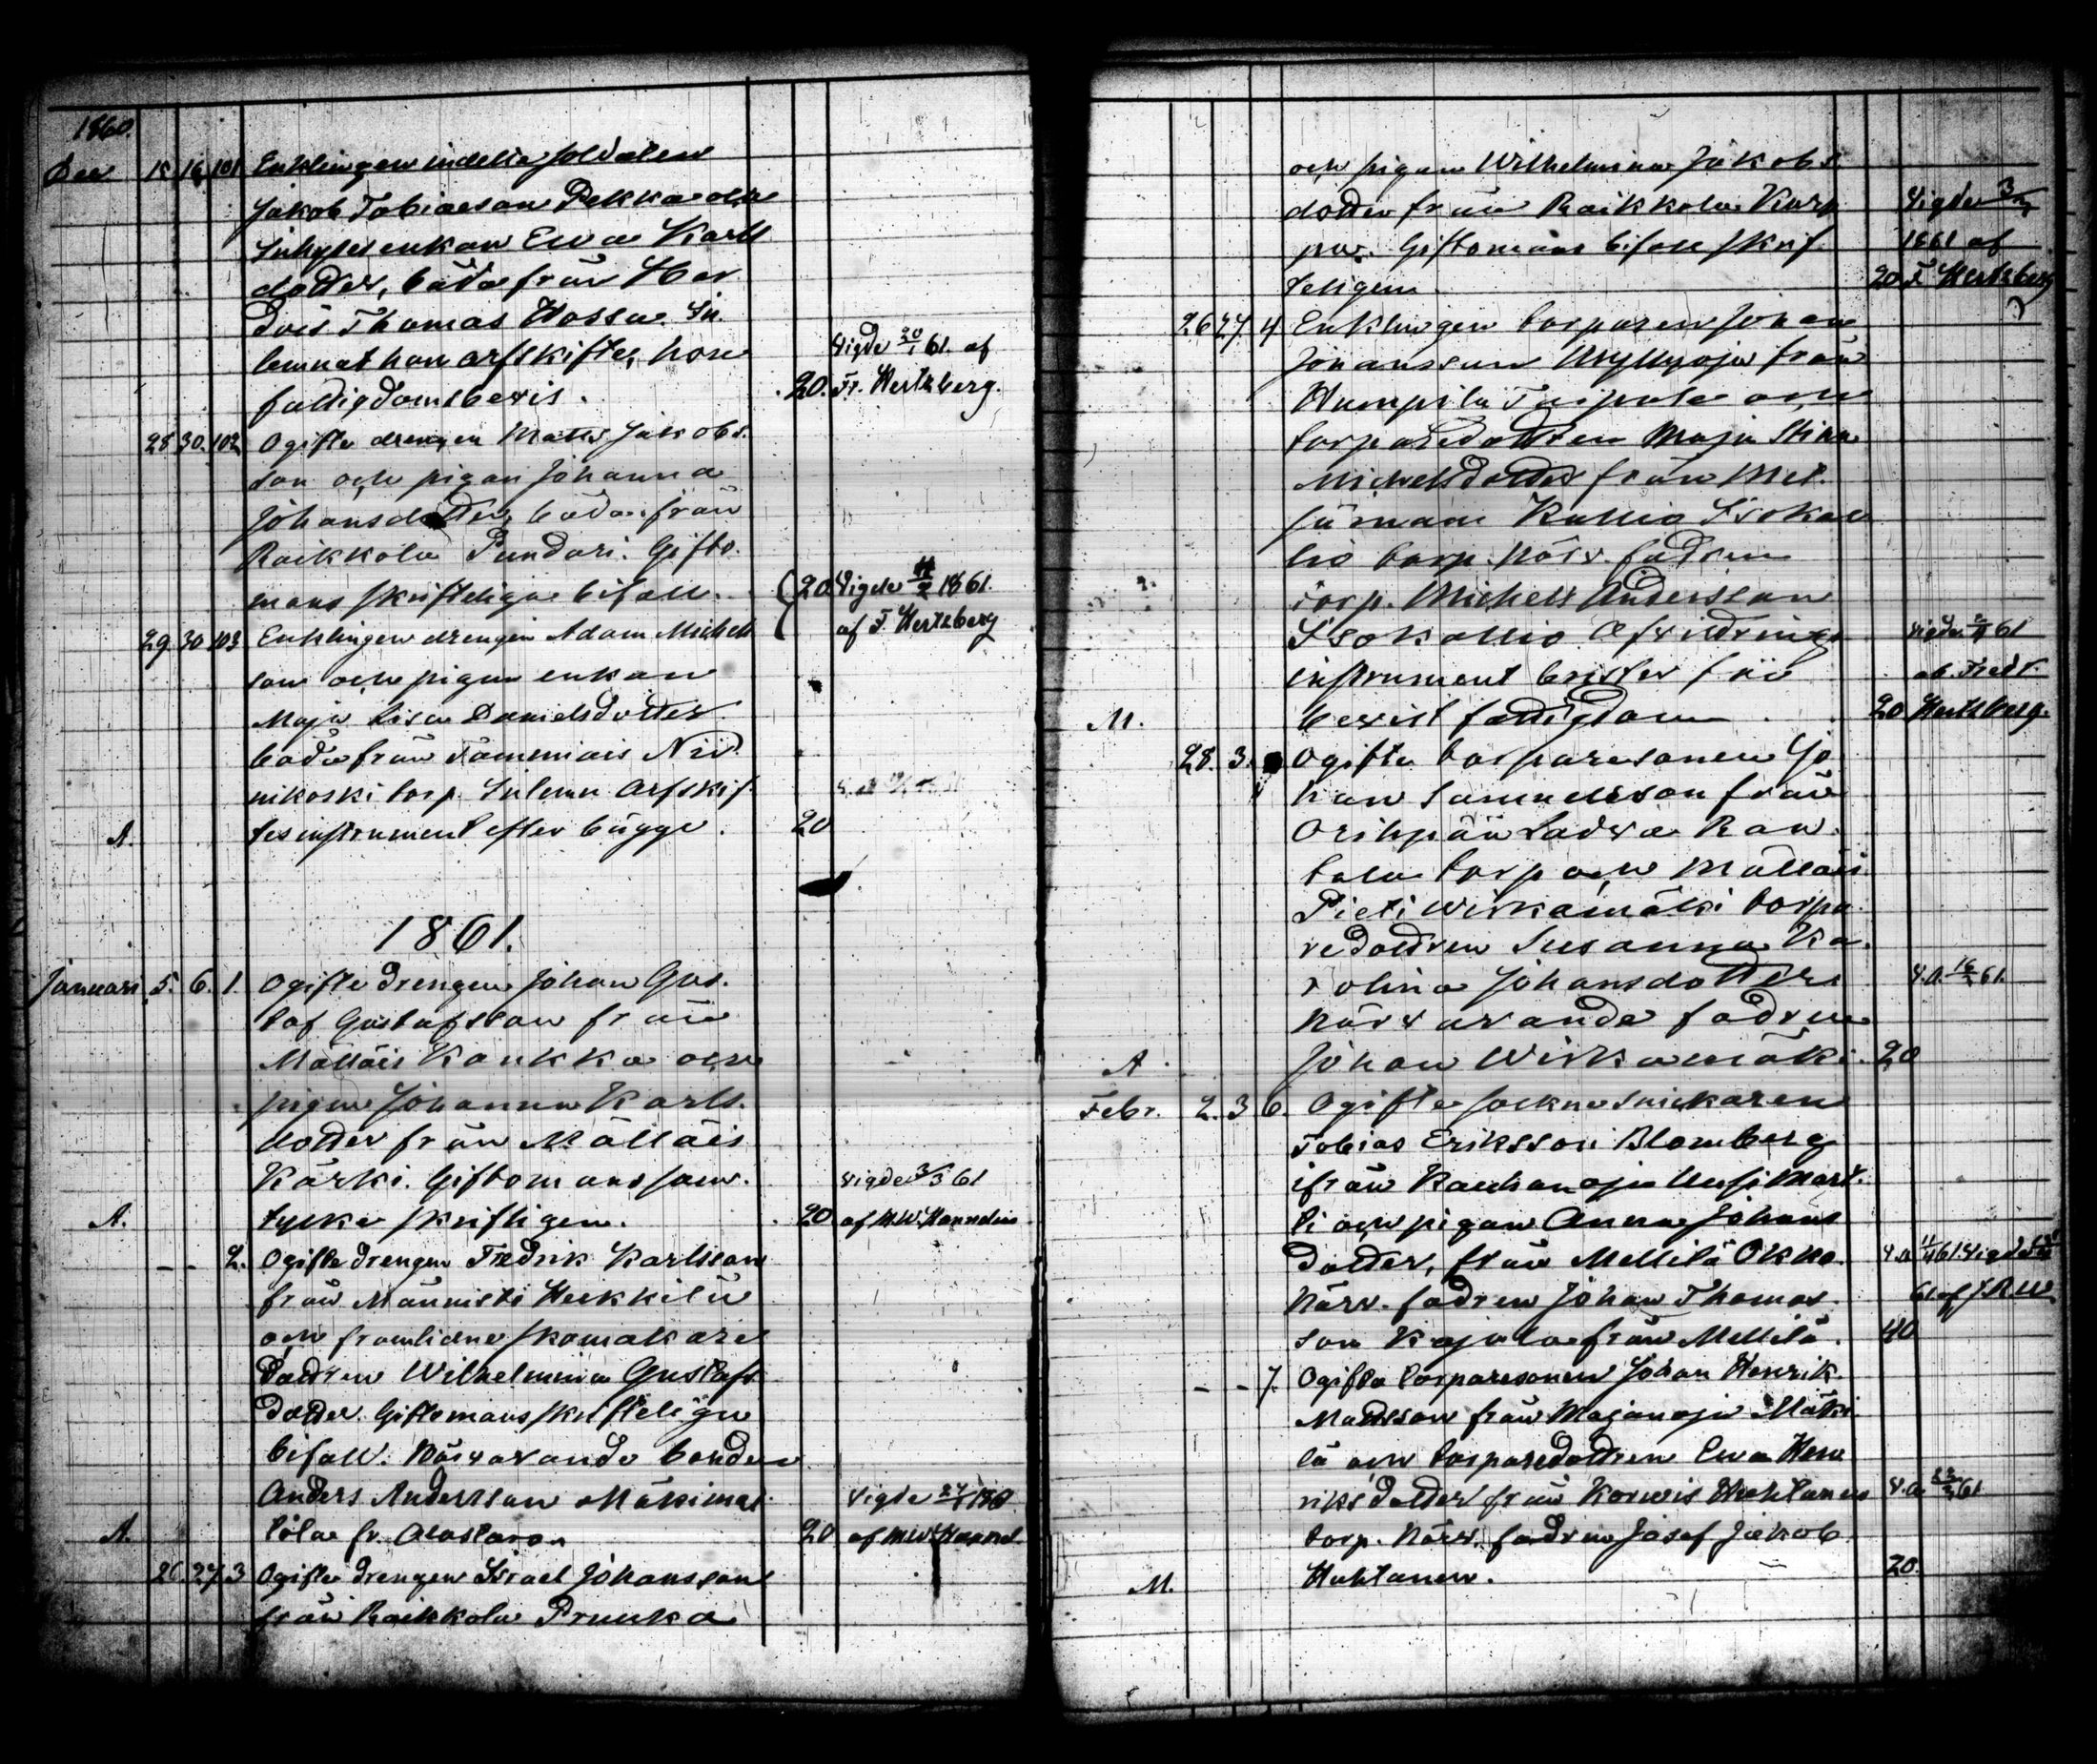 1860.
Dec 15 16 101 Enklingen indelta soldaten
Jakob Tobiasson Pekka och
Inhyses enkan Ewa Karls
dotter, båda från Här
döis Thomas Hossa. In.
lemnat han arfskifte, hon
fattigdomsbevis. 20. Vigde 20/1 61. af Fr. Hertzberg.
28 30. 102 Ogifte drengen Matts Jakobs.
son och pigan Johanna
Johansdotter, båda från
Raikkola Pundari. Gifto.
mans skrifteliga bifall. 20 Vigde 1861. af F. Hertzberg
29 30 103 Enklingen drengen Adam Michels
son och pigan enkan
Maja Lisa Danielsdotter
båda från Tammiais Nii.
nikoski torp. Inlemn. Arfskif.
A. tesinstrument efter bägge. 20
1861.
Januari 5. 6. 1. Ogifte drengen Johan Gus.
taf Gustafsson från
Mälläis Kaukka och
pigan Johanna Karls.
dotter från Mälläis
Kärki. Giftomans sam.
A. tycke skriftligen. 20 vigde 3/3 61 af M.W. Hannelius
- - 2. Ogifte drengen Fredrik Karlsson
från Männistö Heikkilä
och framlidne skomakare
dottren Wilhelmina Gustafs
dotter. Giftomans skrifteliga
bifall. Närvarande bonden
Anders Andersson Mäkimat
A. tila fr. Alastaro. 20 Vigde af M.W. Hannel.
26. 27. 3 Ogifte drengen Israel Johansson
från Raikkola Prunka
och pigan Wilhelmina Jakobs
dotter från Raikkola Karp
pa. Giftomans bifall skrif
teligen. 20 Vigde 1861 af F Hertzberg
26 27. 4 Enklingen torparen Johan
Johansson Myllyoja från
Humpila Taipale och
torparedottren Maja Stina
Michelsdotter från Mel.
Isokal
lio torp. Närv. fadren
torp. Michels Andersson
Isokallio Afvittrings
instrument brister för
M. bevist fattigdom. 20 vigde 61 ab. Fredr. Hertzberg.
28. 3. Ogifte torparesonen Jo
han Samuelsson från
Oripää Ladva Ran.
tala torp och Mälläis
Pieti Wirkamäki torpa.
redottren Susanna Ka.
rolina Johansdotter
Närvarande fadren
A. Johan Wirkamäki. 20 V.a. 61.
Febr. 2. 3 6. Ogifte socknesnickaren
Tobias Eriksson Blomberg
ifrån Kauhanoja Uusi Mart.
ti och pigan Anna Johans
dotter, från Mellilä Okko.
Närv. fadren Johan Thomas.
son Kajala från Mellilä. 40
- - 7. Ogifte torparesonen Johan Henrik
Mattsson från Majanoja Mäki
lä och torparedottren Ewa Hen
riksdotter från Korvis Huhtanen
torp. Närv. fadren Josef Jakob
M. Huhtanen. 20. V.a. 61